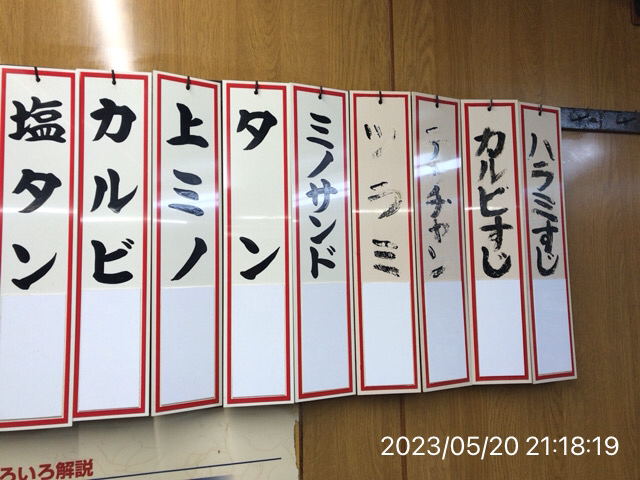 塩タン
カルビ
上ミノ
タン
ミノサンド
ツラミ
テッチャン
カルビすじ
ハラミすじ
ろいろ解説
2023/05/20 21:18:19